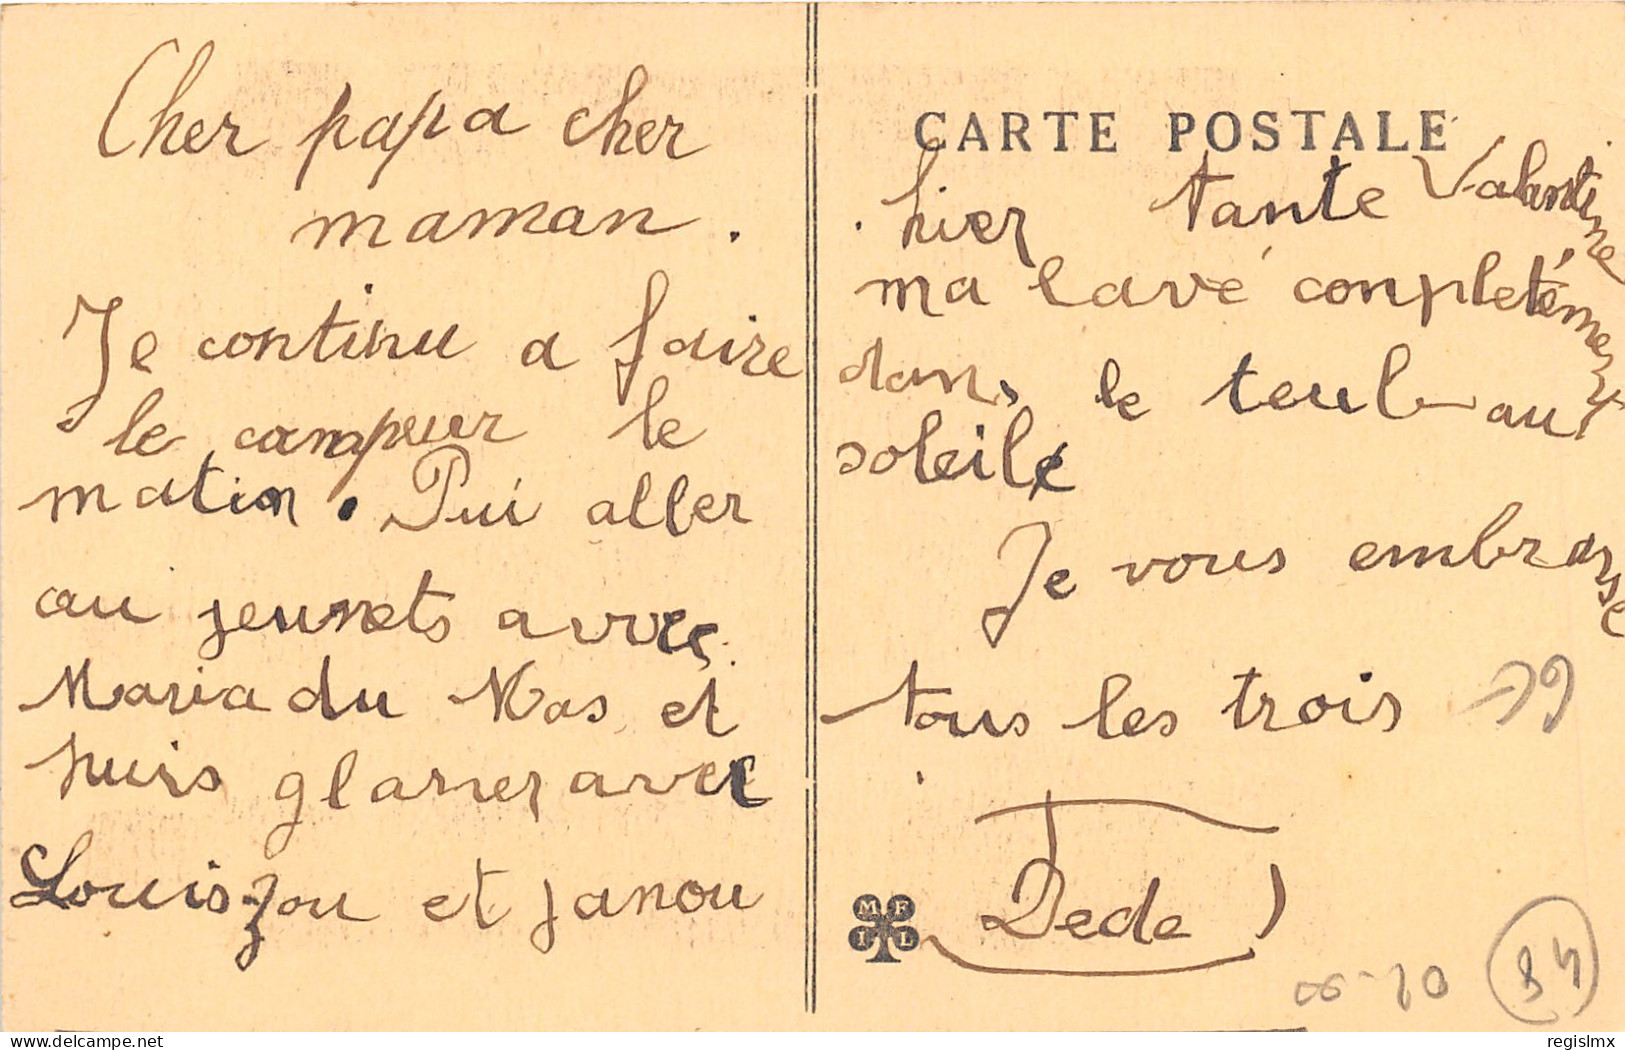 Cher papa cher
maman.
Je continu a faire
le campeur le
matin. Pui aller
au jeunets avvec
Maria du Mas et
puis glaner avec
Louis-zou et janou
CARTE POSTALE
hier tante Valentine
ma lavé conpletément
dans le teul au
soleil
Je vous embrasse
tous les trois
Dede
MF
IL
84
regislmx
delcampe.net